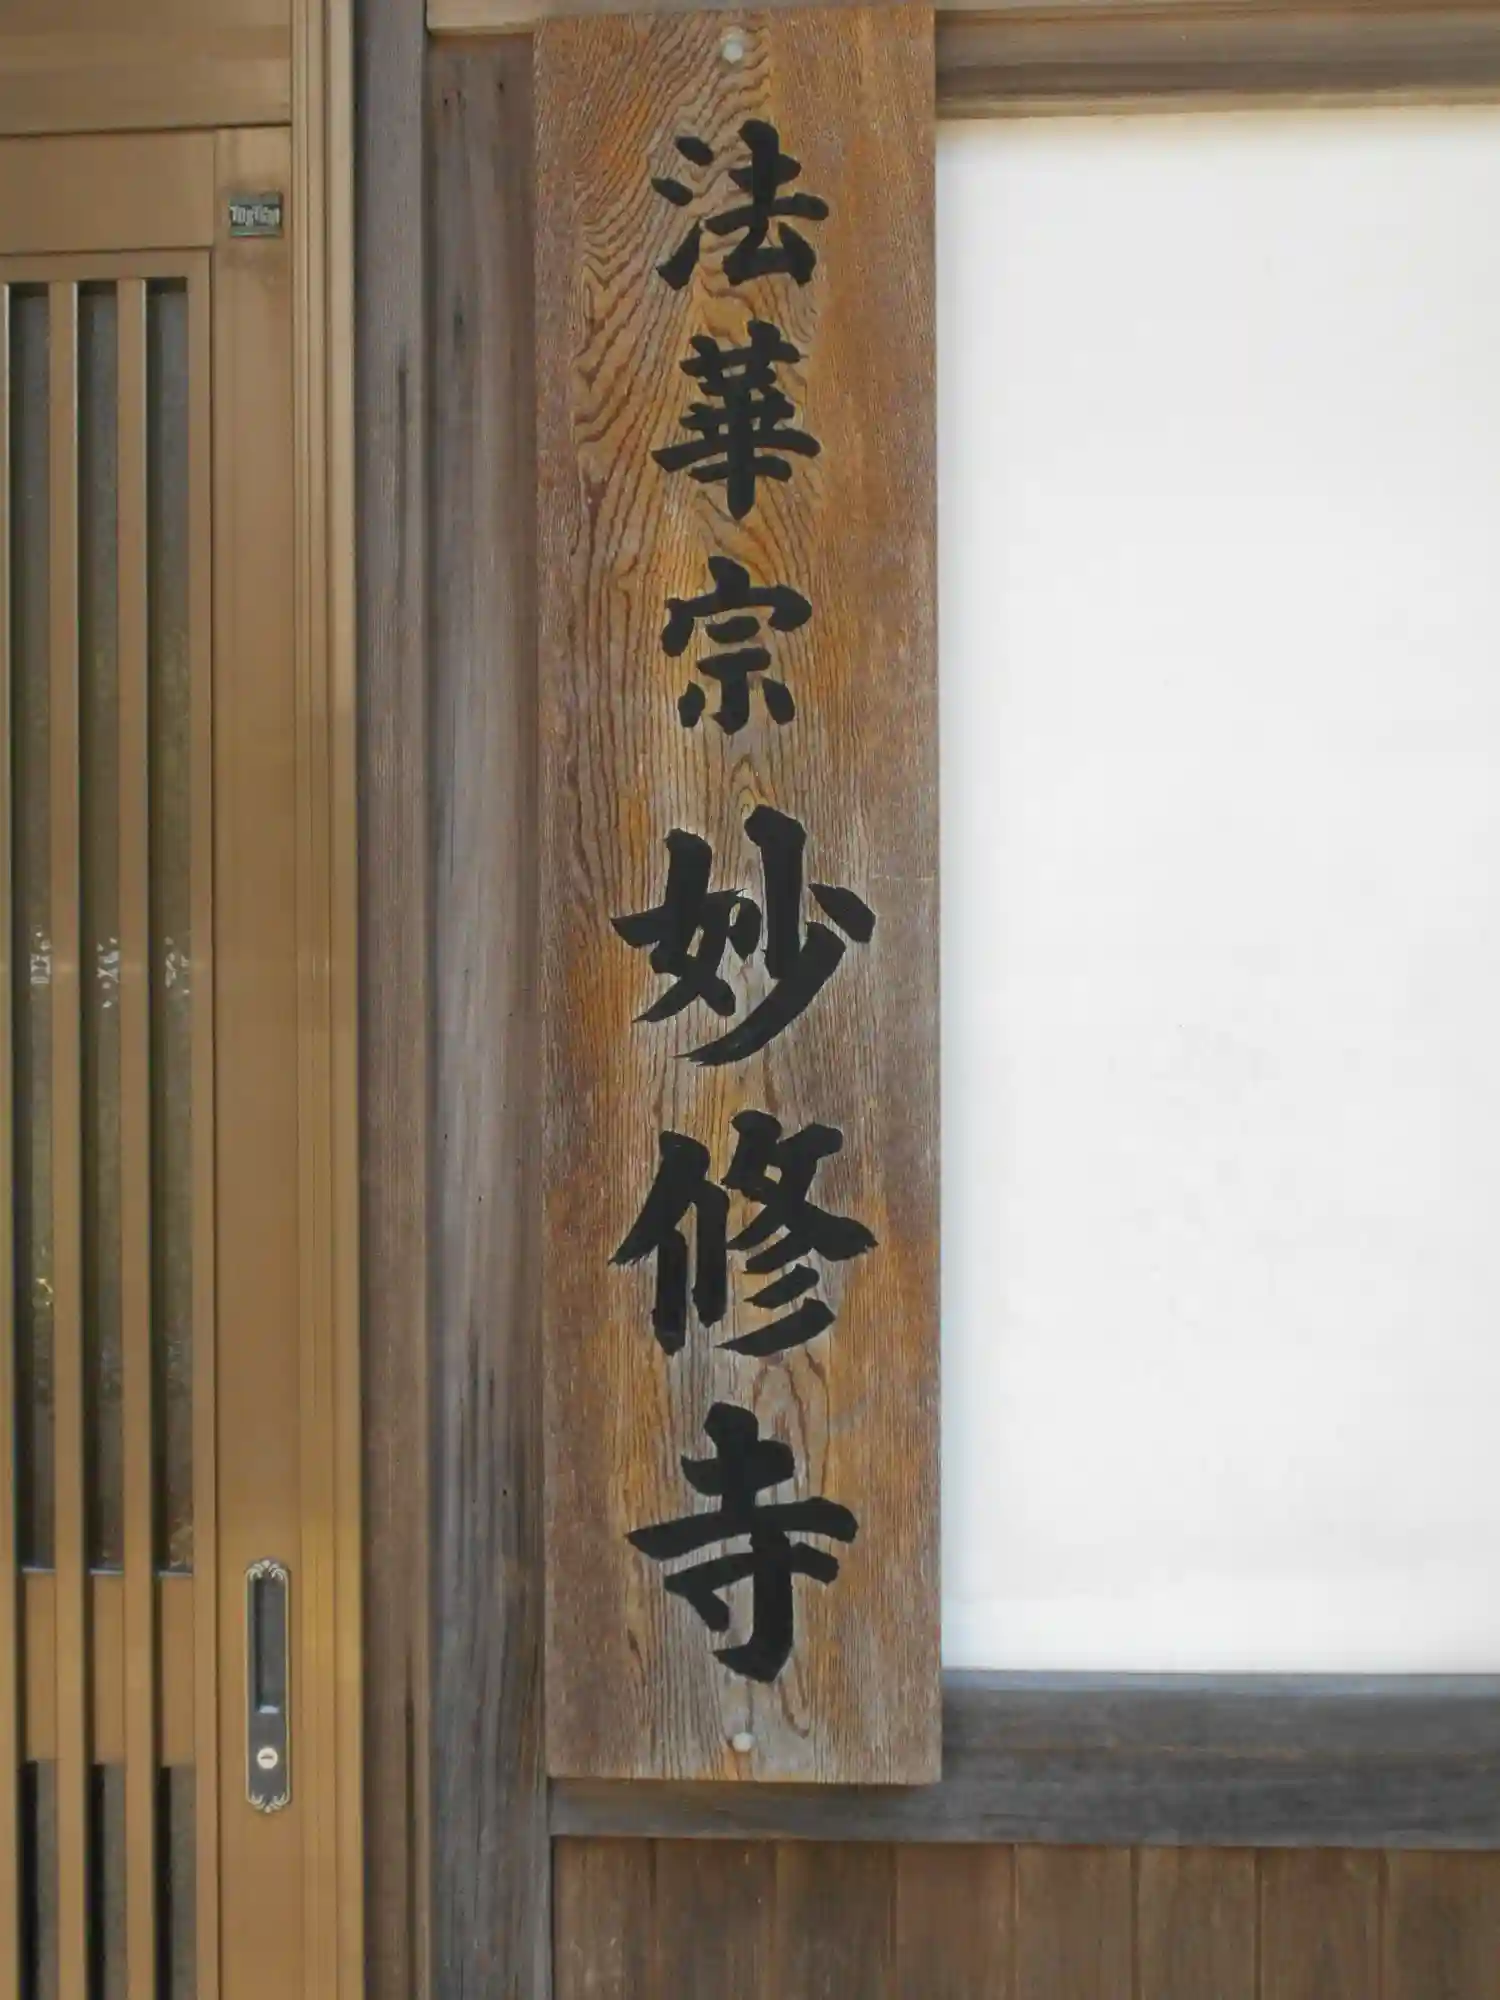 法華宗妙修寺